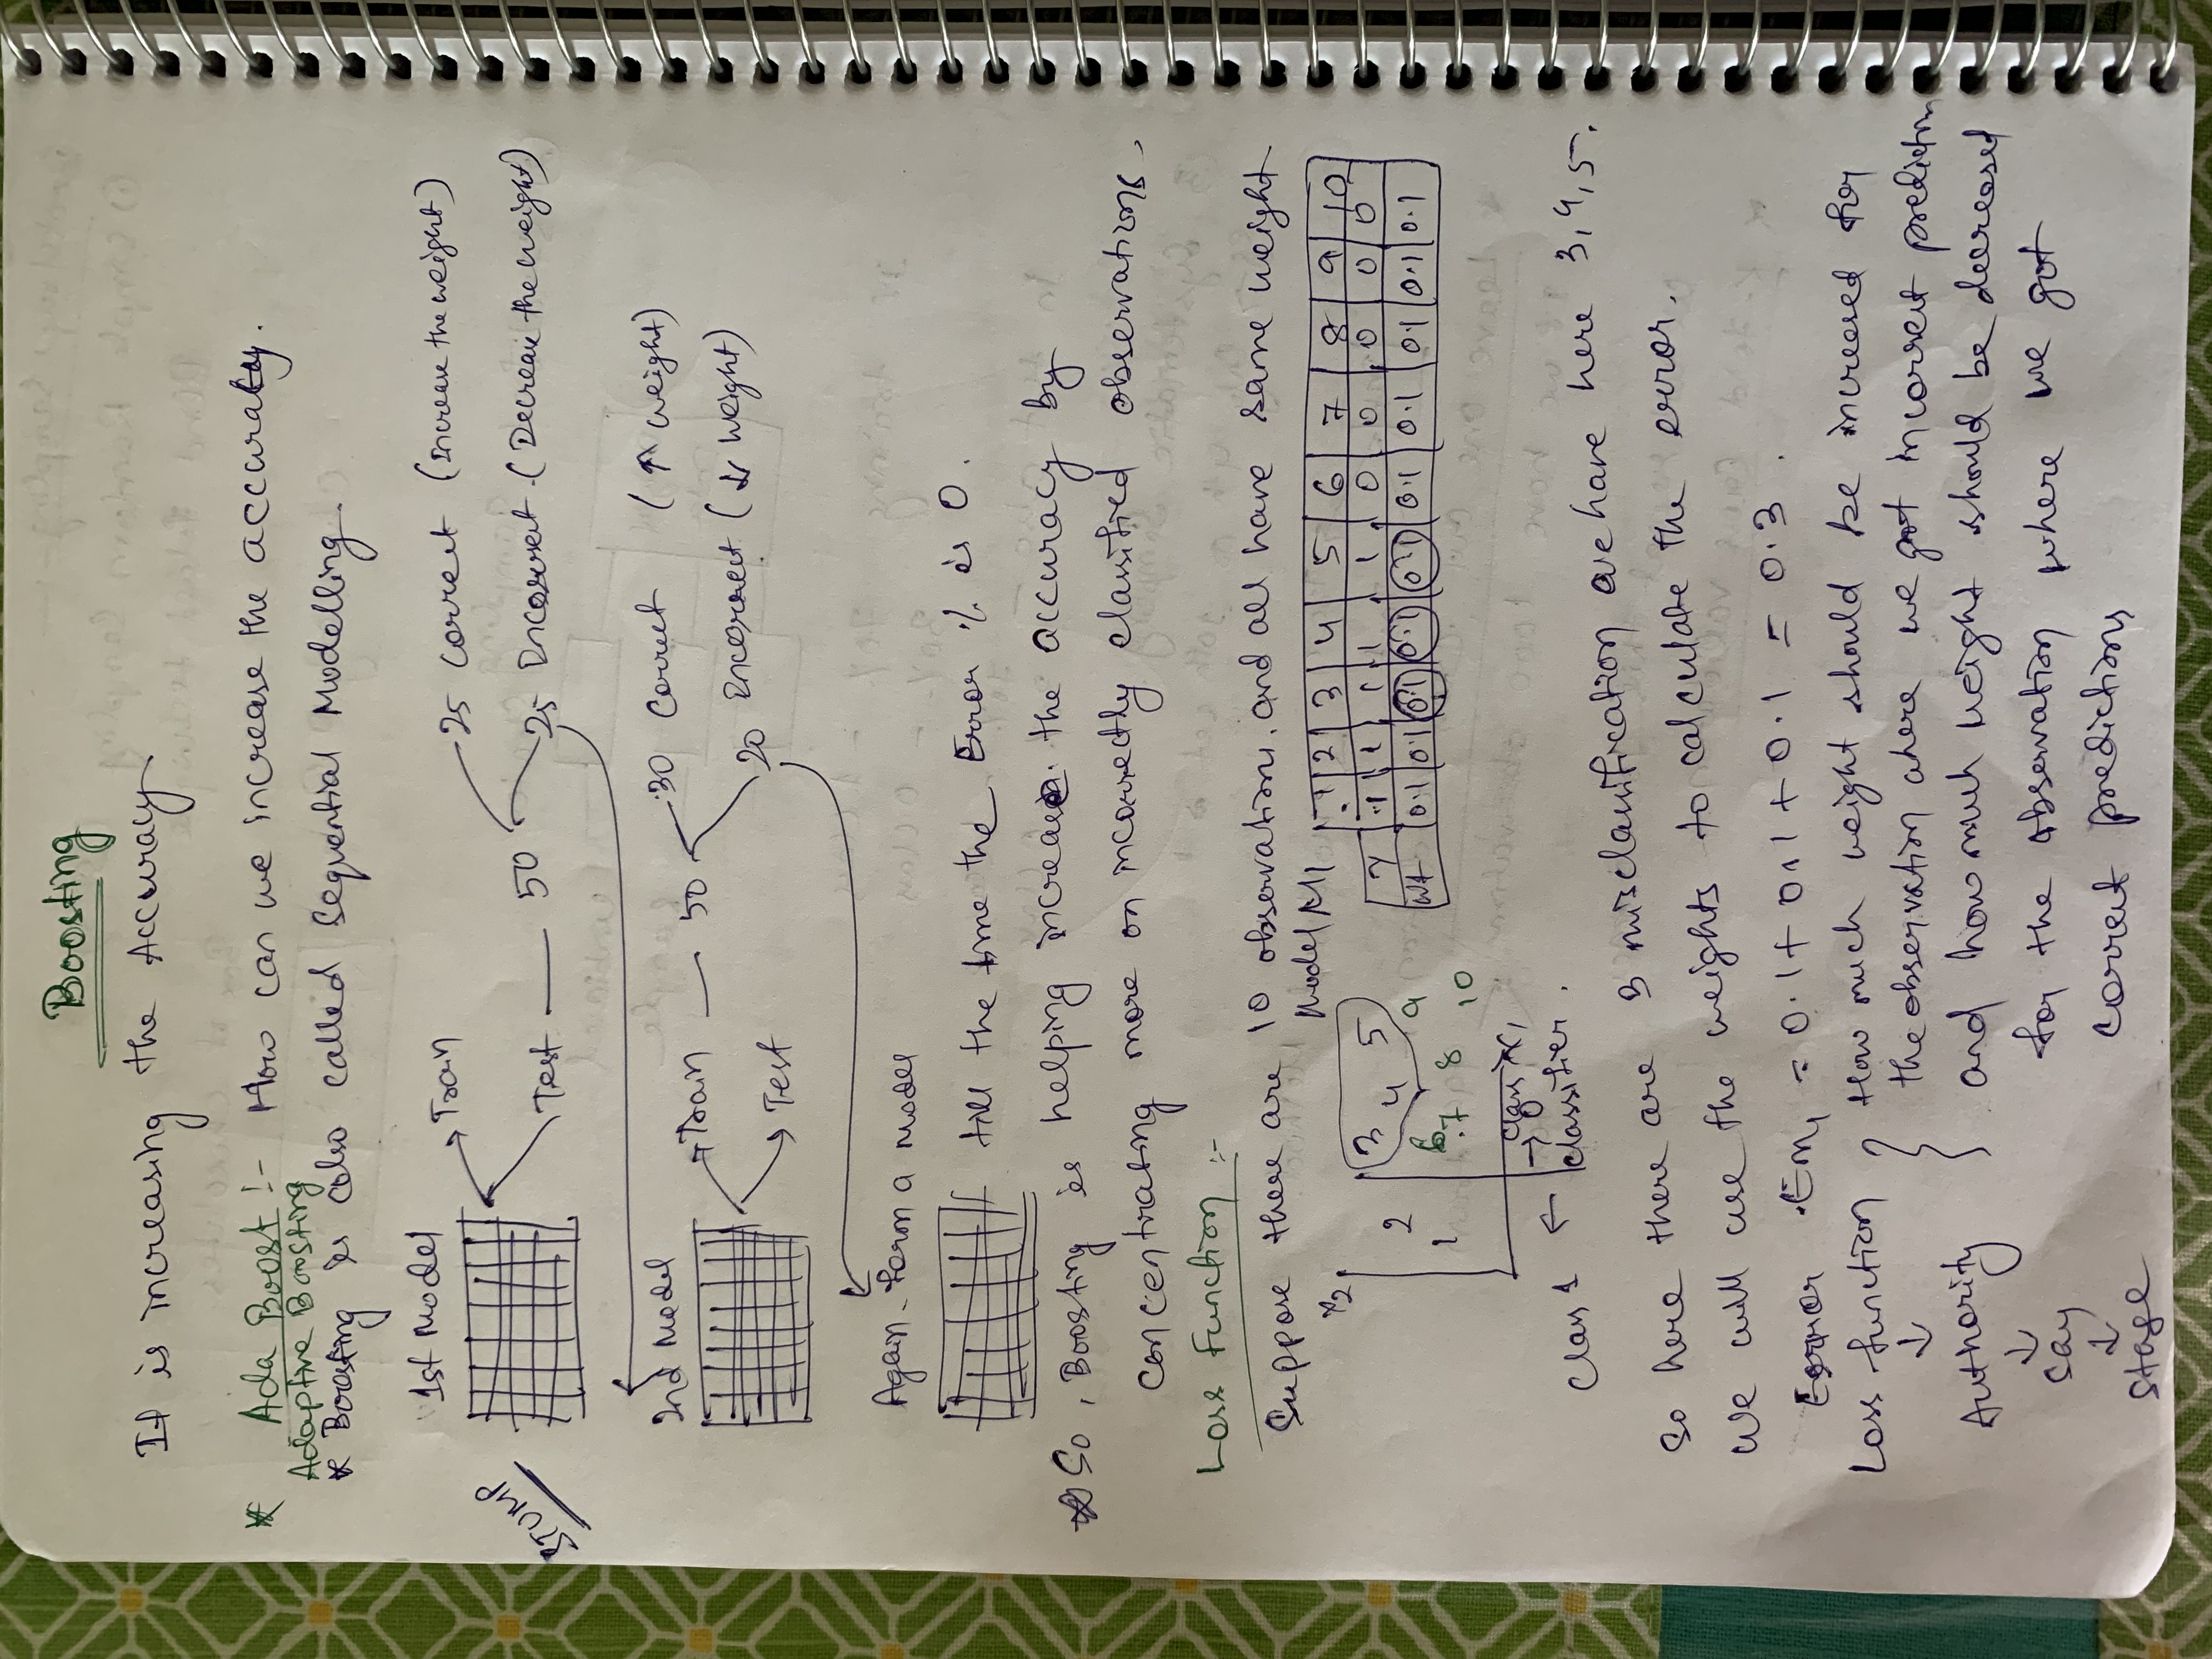 Boosting
It is increasing the Accuracy
* Ada Boost :- How can we increase the accuracy.
Adaptive Boosting
* Boosting is also called Sequential Modelling.
STUMP
1st Model
Train
Test — 50
25 Correct (Increase the weight)
25 Incorrect (Decrease the weight)
2nd Model
Train — 50
Test
30 Correct (↑ weight)
20 Incorrect (↓ weight)
Again form a model
till the time the Error % is 0.
* So, Boosting is helping increase the accuracy by
concentrating more on incorrectly classified observations.
Loss Function :-
Suppose there are 10 observations. and all have same weight
x2
2
1
3 4 5
6 7 8 9 10
class 0
x1
Class 1 ← → classifier.
Model M1
1 2 3 4 5 6 7 8 9 10
Y 1 1 1 1 1 0 0 0 0 0
wt 0.1 0.1 0.1 0.1 0.1 0.1 0.1 0.1 0.1 0.1
So here there are 3 misclassification we have here 3, 4, 5.
We will use the weights to calculate the error.
Error Em1 = 0.1 + 0.1 + 0.1 = 0.3.
Loss function
↓
Authority
↓
Say
↓
Stage
How much weight should be increased for
the observation where we got incorrect prediction
and how much weight should be decreased
for the observation where we got
correct predictions